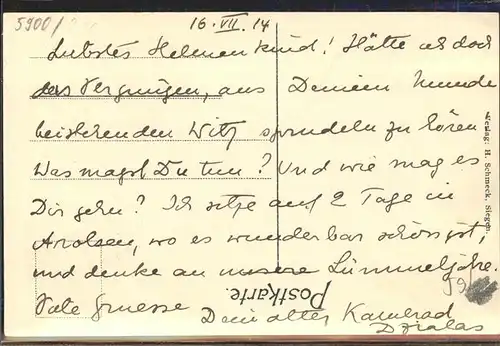 5900/
16. VII. 14
Liebstes Helmenkind! Hätte ich doch
das Vergnügen, aus Deinem Munde
beistehenden Witz sprudeln zu hören
Was magst Du tun? Und wie mag es
Dir gehn? Ich sitze auf 2 Tage in
Arolsen, wo es wunderbar schön ist,
und denke an unsere Lümmeljahre.
Viele Gruesse
Dein alter Kamerad
Verlag: H. Schmeck, Siegen.
Postkarte.